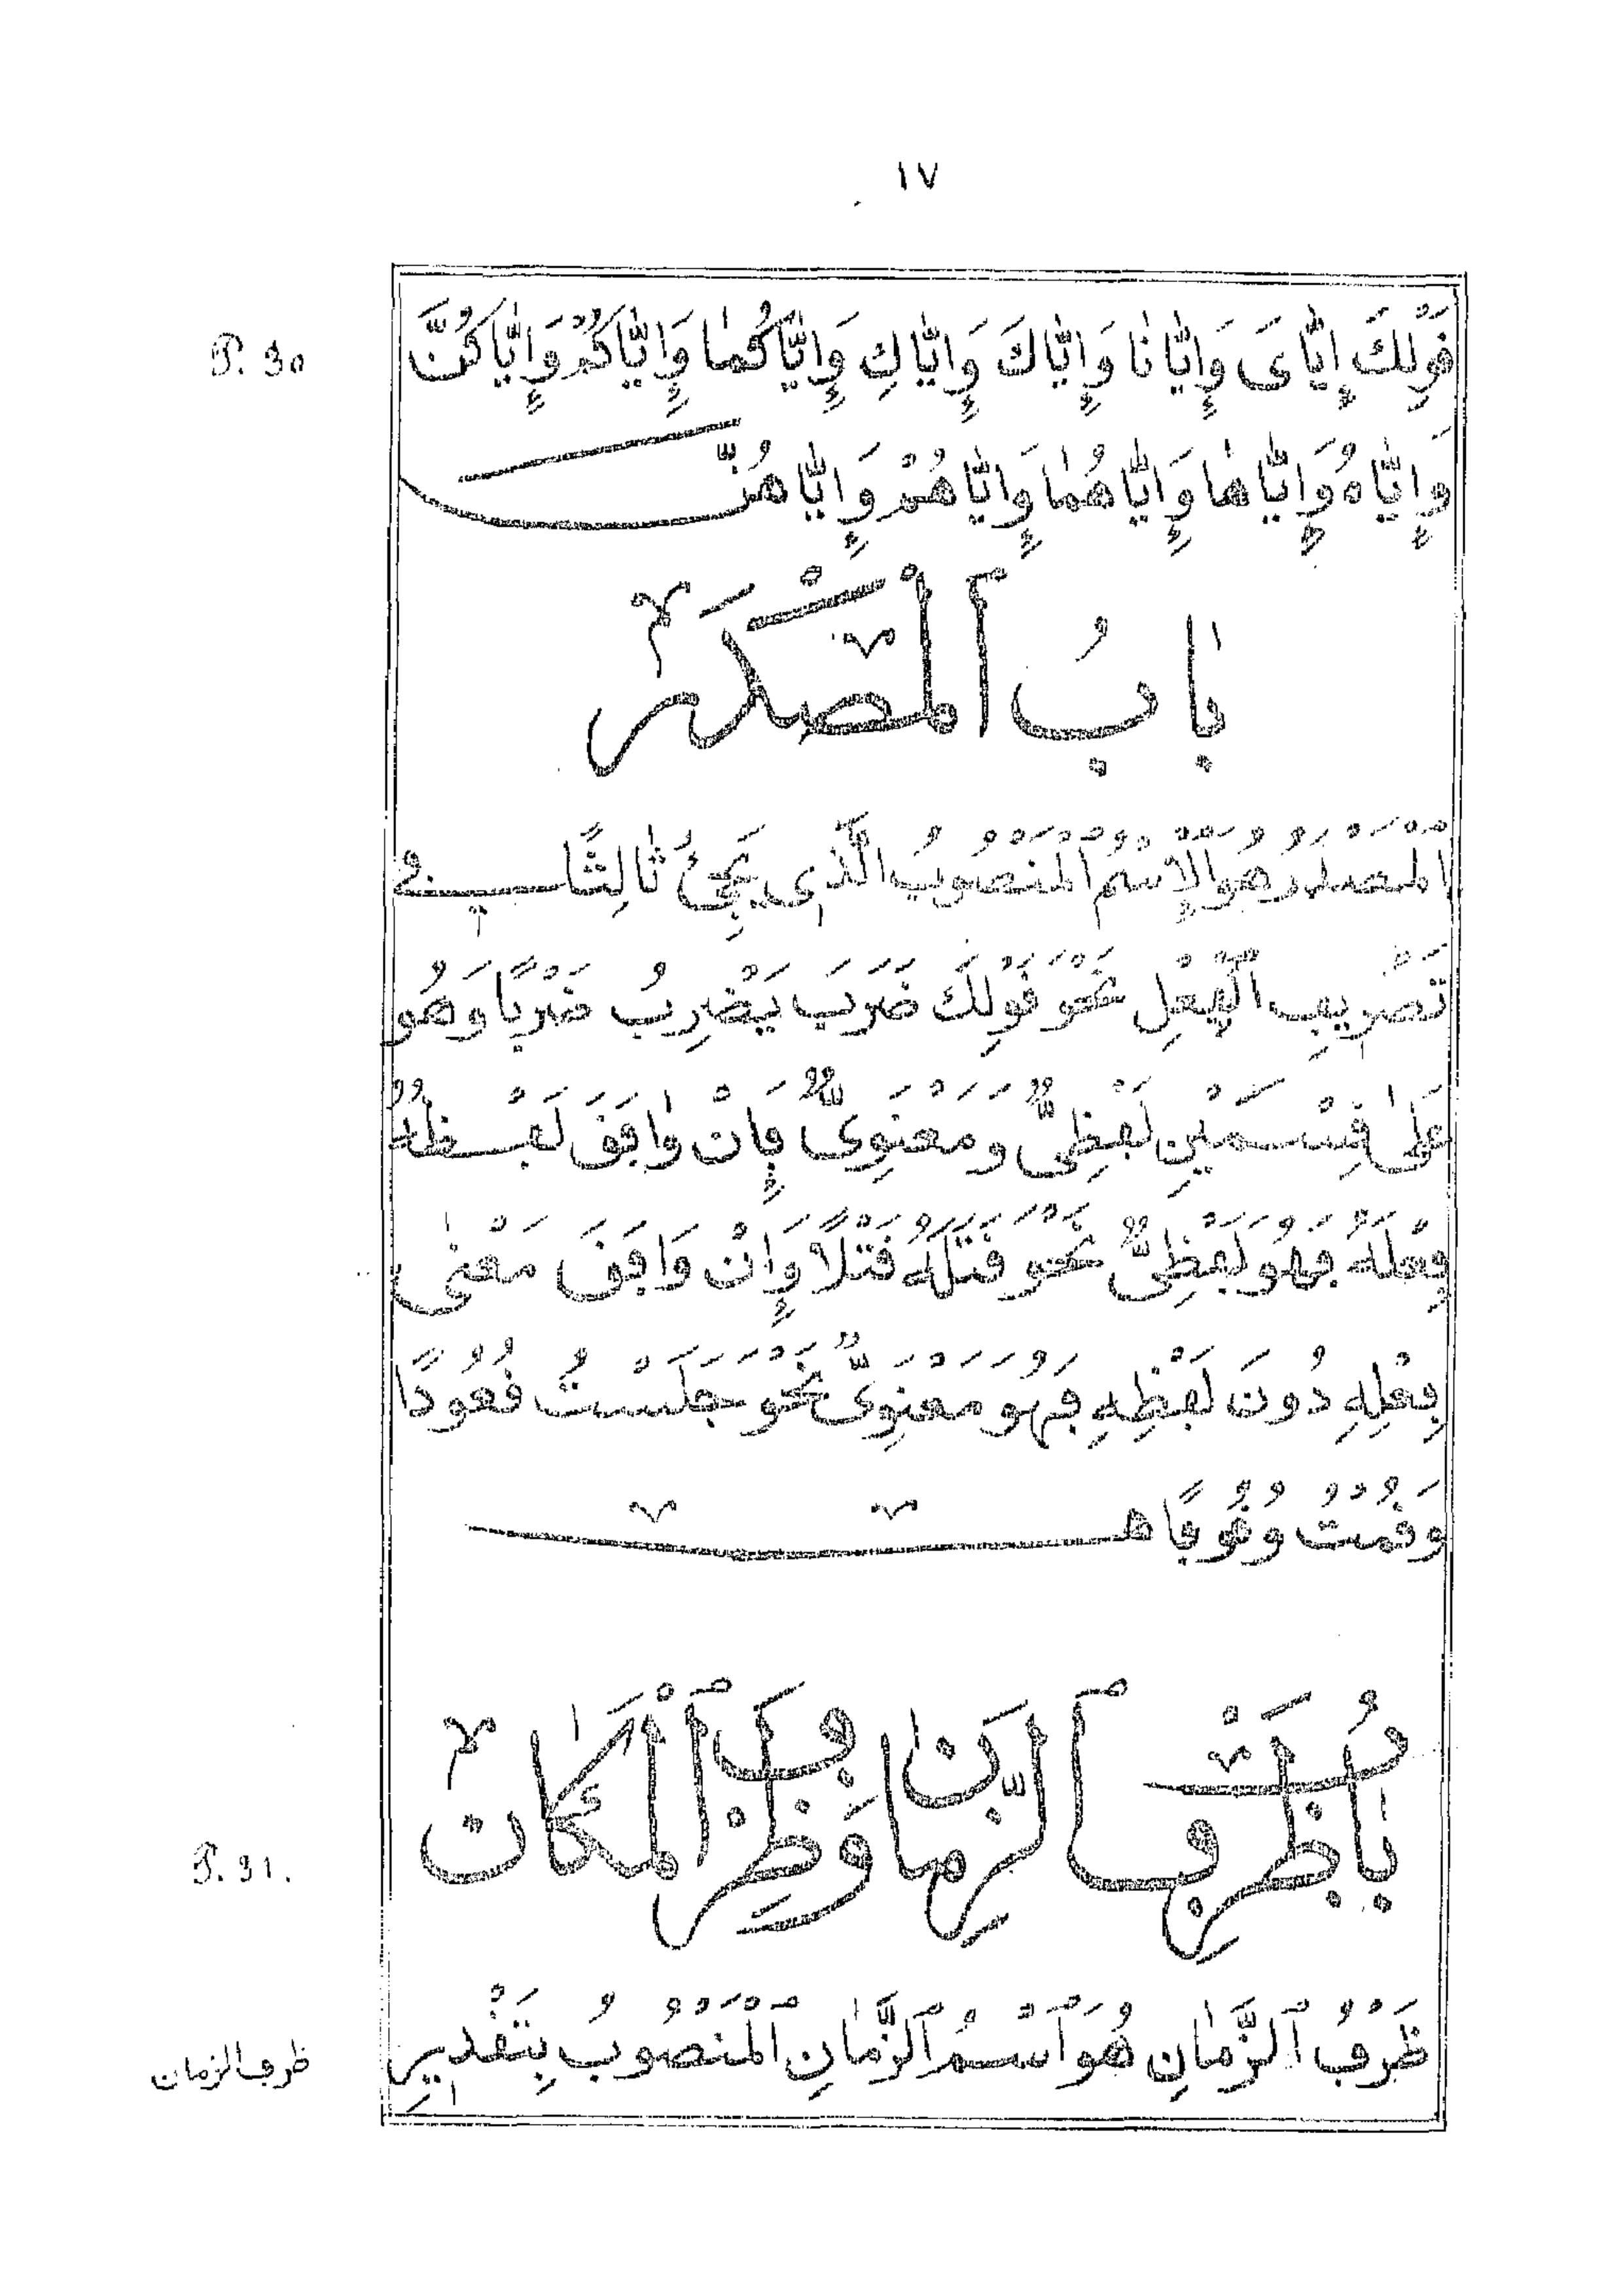 ١٧
P. 30
قَوْلِكَ إِيَّايَ وَإِيَّانَا وَإِيَّاكَ وَإِيَّاكِ وَإِيَّاكُمَا وَإِيَّاكُمْ وَإِيَّاكُنَّ
وَإِيَّاهُ وَإِيَّاهَا وَإِيَّاهُمَا وَإِيَّاهُمْ وَإِيَّاهُنَّ
بَابُ ٱلْمَصْدَرِ
اَلْمَصْدَرُ هُوَ الْاِسْمُ الْمَنْصُوبُ الَّذِي يَجِئُ ثَالِثًا فِي
تَصْرِيفِ الْفِعْلِ نَحْوَ قَوْلِكَ ضَرَبَ يَضْرِبُ ضَرْبًا وَهُوَ
عَلَى قِسْمَيْنِ لَفْظِيٌّ وَمَعْنَوِيٌّ فَإِنْ وَافَقَ لَفْظُهُ
فِعْلَهُ فَهُوَ لَفْظِيٌّ نَحْوَ قَتَلَهُ قَتْلًا وَإِنْ وَافَقَ مَعْنَى
فِعْلِهِ دُونَ لَفْظِهِ فَهُوَ مَعْنَوِيٌّ نَحْوَ جَلَسْتُ قُعُودًا
وَقُمْتُ وُقُوفًا هـ
P. 31.
بَابُ ظَرْفِ ٱلزَّمَانِ وَظَرْفِ ٱلْمَكَانِ
ظَرْفُ ٱلزَّمَانِ هُوَ ٱسْمُ ٱلزَّمَانِ ٱلْمَنْصُوبُ بِتَقْدِيرِ
ظرف الزمان